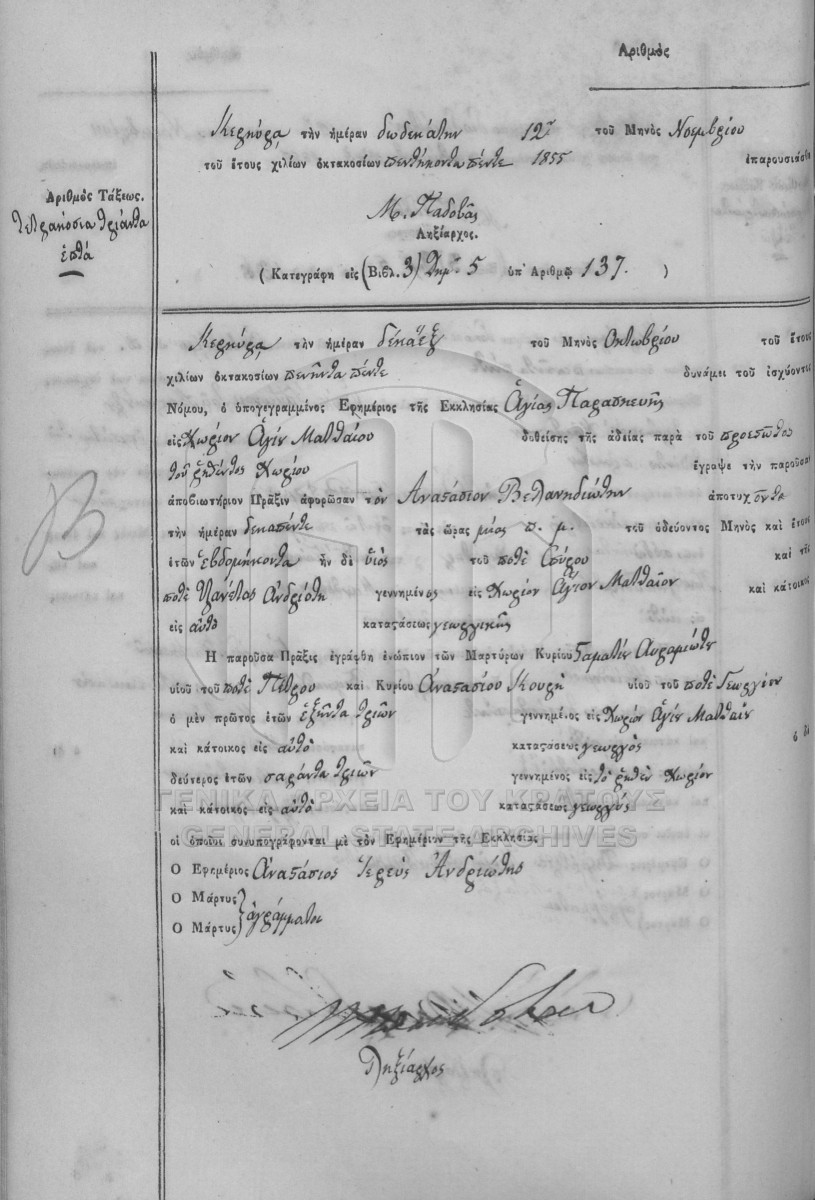 Ἀριθμὸς
Κερκύρα τὴν ἡμέραν δωδεκάτην 12ην τοῦ Μηνὸς Νοεμβρίου
τοῦ ἔτους χιλίων ὀκτακοσίων πεντήκοντα πέντε 1855 ἐπαρουσιάσθη
Ἀριθμὸς Τάξεως.
Τετρακόσια τριάντα
ἑπτά
Μ. Παδοβᾶς
Ληξίαρχος.
( Κατεγράφη εἰς (Βιβλ. 3) Σημ. 5 ὑπ' Ἀριθμῷ 137. )
Κερκύρα τὴν ἡμέραν δέκα ἓξ τοῦ Μηνὸς Ὀκτωβρίου τοῦ ἔτους
χιλίων ὀκτακοσίων πενῆντα πέντε δυνάμει τοῦ ἰσχύοντος
Νόμου, ὁ ὑπογεγραμμένος Ἐφημέριος τῆς Ἐκκλησίας Ἁγίας Παρασκευῆς
εἰς Χωρίον Ἁγίν Ματθαίου δοθείσης τῆς ἀδείας παρὰ τοῦ προεστῶτος
τοῦ ῥηθέντος Χωρίου ἔγραψε τὴν παροῦσαν
ἀποβιωτήριον Πρᾶξιν ἀφορῶσαν τὸν Ἀναστάσιον Βελανηδιώτην ἀποτυχόντα
τὴν ἡμέραν δεκαπέντε τὰς ὥρας μίας π. μ. τοῦ ὁδεύοντος Μηνὸς καὶ ἔτους
ἐτῶν ἑβδομήκοντα ἦν δὲ υἱὸς τοῦ ποτὲ Σπύρου καὶ τῆς
ποτὲ Ἀνδριότη γεννημένος εἰς Χωρίον Ἅγιον Ματθαῖον καὶ κάτοικος
εἰς αὐτὸ καταστάσεως γεωργικῆς
Ἡ παροῦσα Πρᾶξις ἐγράφθη ἐνώπιον τῶν Μαρτύρων Κυρίου Σταματίου Αὐραμιώτη
υἱοῦ τοῦ ποτὲ Πέτρου καὶ Κυρίου Ἀναστασίου Κουρῆ υἱοῦ τοῦ ποτὲ Γεωργίου
ὁ μὲν πρῶτος ἐτῶν ἑξῆντα τριῶν γεννημένος εἰς Χωρίον Ἁγίν Ματθαῖν
καὶ κάτοικος εἰς αὐτὸ καταστάσεως γεωργὸς ὁ δὲ
δεύτερος ἐτῶν σαράντα τριῶν γεννημένος εἰς τὸ ῥηθὲν Χωρίον
ΓΕΝΙΚΑ ΑΡΧΕΙΑ ΤΟΥ ΚΡΑΤΟΥΣ
καὶ κάτοικος εἰς αὐτὸ καταστάσεως γεωργός
GENERAL STATE ARCHIVES
οἱ ὁποῖοι συνυπογράφονται μὲ τὸν Ἐφημέριον τῆς Ἐκκλησίας
Ὁ Ἐφημέριος Ἀναστάσιος Ἱερεὺς Ἀνδριώτης
Ὁ Μάρτυς
Ὁ Μάρτυς } ἀγράμματοι
Ληξίαρχος